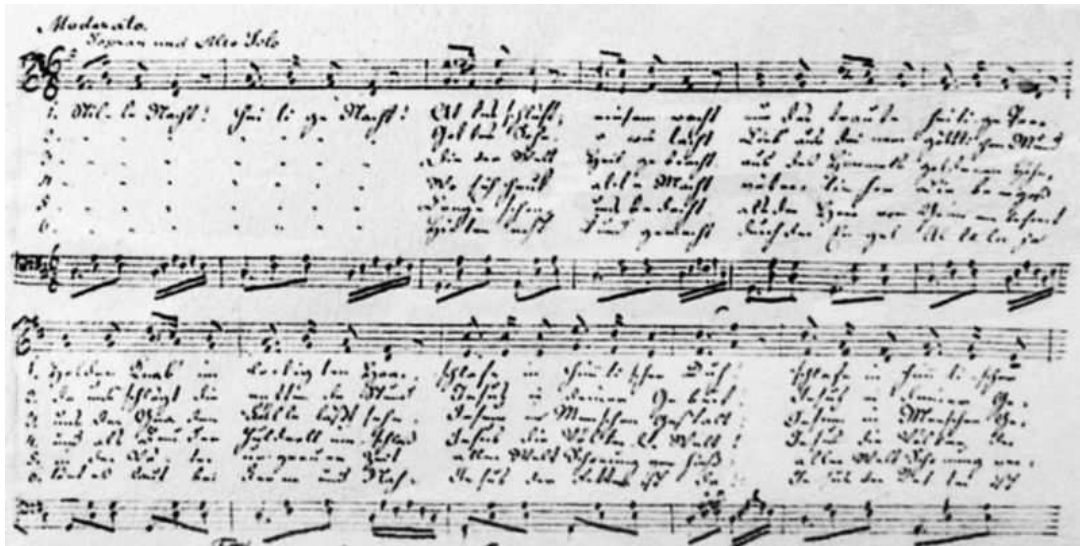 Moderato.
Sopran und Alto Solo
1. Stil-le Nacht! Hei li ge Nacht! Al les schläft; einsam wacht nur das traute heilige Paar
2. Gottes Sohn, o wie lacht Lieb aus deinem göttlichen Mund
3. Die der Welt Heil gebracht, aus des Himmels goldenen Höhn,
4. Wo sich heut alle Macht
5. Lange schon uns bedacht als der Herr vom Grimme befreit
6. Hirten erst kund gemacht durch der Engel Alleluja
1. Holder Knab im lockigten Haar, schlafe in himmlischer Ruh! schlafe in himmlischer
2. Da uns schlägt die rettende Stund. Jesus in deiner Geburt! Jesus in deiner Ge-
3. uns der Gnaden Fülle läßt sehn, Jesum in Menschen Gestalt! Jesum in Menschen Ge-
4. und als Bruder huldvoll umschloß Jesus die Völker der Welt! Jesus die Völker der
5. in der Väter urgrauer Zeit aller Welt Schonung verhieß aller Welt Schonung ver-
6. tönt es laut bei Ferne und Nah, Jesus der Retter ist da! Jesus der Retter ist